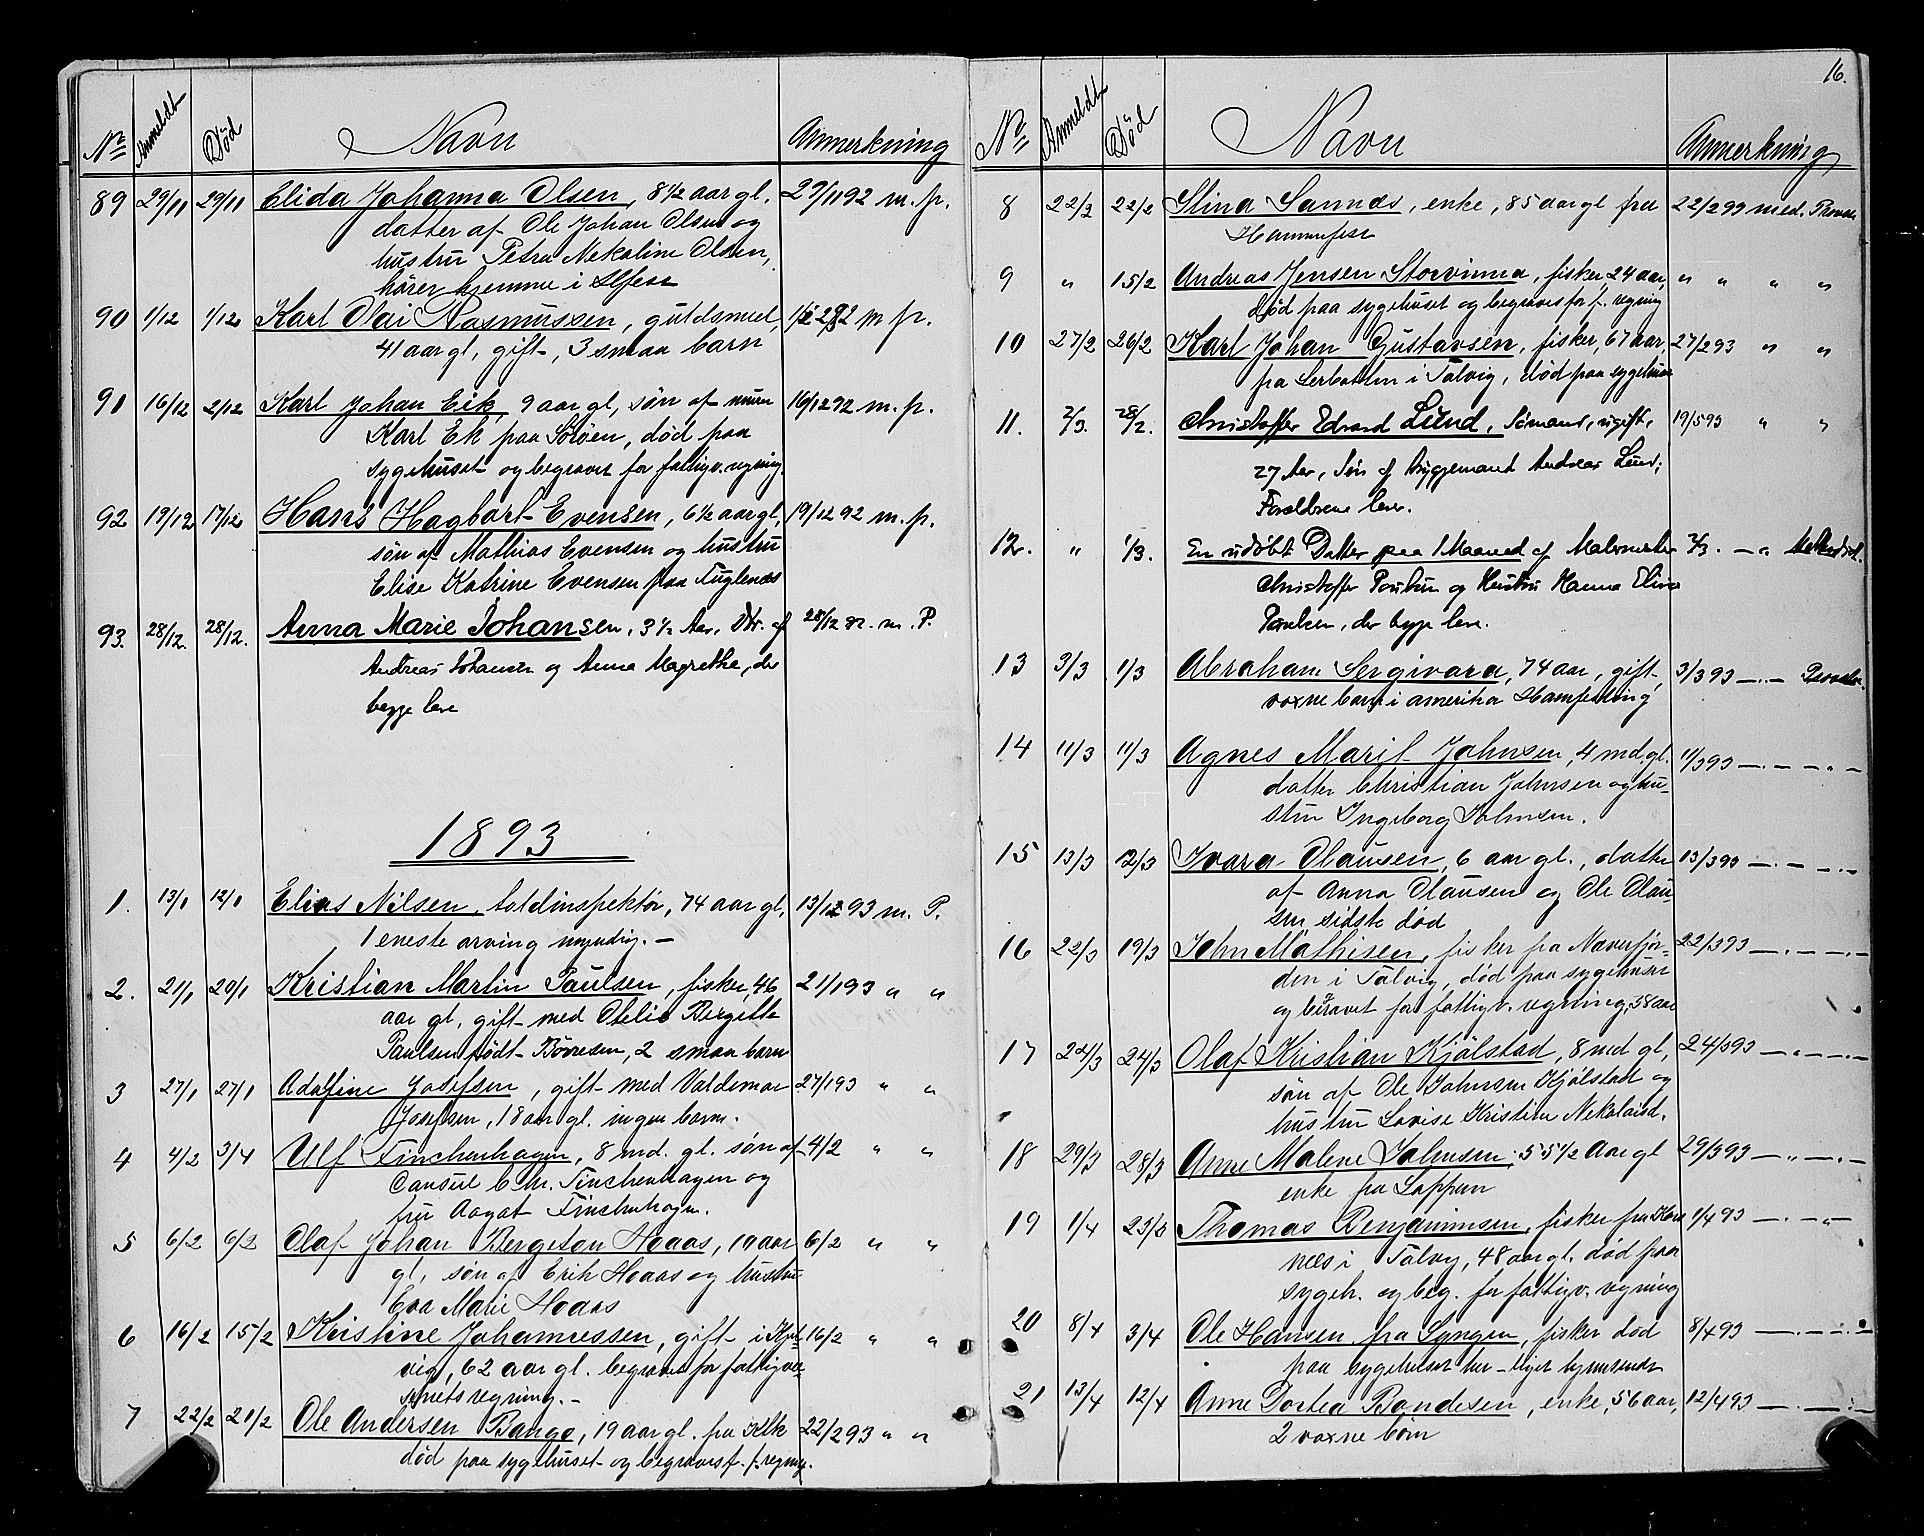 No Anmeldt Död Navn Anmerkning
89 29/11 29/11 Elida Johanna Olsen, 8 1/2 aar gl. 29/11 92 m. p.
datter af Ole Johan Olsen og
hustru Petra Nekoline Olsen,
hører hjemme i Hfest
90 1/12 1/12 Karl Olai Rasmussen, guldsmed, 1/12 92 m p.
41 aar gl, gift, 3 smaa barn
91 16/12 2/12 Karl Johan Eik, 9 aar gl, søn af murer 16/12 92 m. p.
Karl Ek paa Sørøen, død paa
sygehuset og begravet for fattigv. regning
92 19/12 17/12 Hans Hagbart Evensen, 6 1/2 aar gl, 19/12 92 m. p.
søn af Mathias Evensen og hustru
Elise Katrine Evensen paa Fuglenæs
93. 28/12. 28/12. Anna Marie Johansen, 3 1/2 Aar, Dtr. af 28/12 92. m. P.
Andreas Johansen og Anna Magrethe, der
begge leve
1893
1. 13/1 12/1 Elias Nilsen, toldinspektör, 74 aar gl, 13/1 93 m. P.
1 eneste arving myndig. –
2. 21/1 20/1 Kristian Martin Paulsen, fisker, 46 21/1 93 " "
aar gl, gift med Otelie Bergette
Paulsen født Børresen, 2 smaa barn
3 27/1 27/1 Adolfine Josefsen, gift med Valdemar 27/1 93 " "
Josefsen, 18 aar gl. ingen barn.
4 4/2 3/4 Ulf Finchenhagen, 8 md. gl. søn af 4/2 " "
Consul Chr. Finchenhagen og
fru Aagot Finchenhagen.
5 6/2 6/2 Olaf Johan Bergeton Hoaas, 10 aar 6/2 " "
gl, søn af Erik Hoaas og hustru
Eva Marie Hoaas
6 16/2 15/2 Kristine Johannessen, gift i 16/2 " "
vig, 62 aar gl. begravet for fattigvæ-
senets regning. –
7 22/2 21/2 Ole Andersen Bange, 19 aar gl. fra 22/2 93 " "
død paa sygehuset og begravet f. f. regning.
16.
No Anmeldt Död Navn Anmerkning
8 22/2 22/2 Stina Sannæs, enke, 85 aar gl fra 22/2 93 med.
Hammerfest
9 " 15/2 Andreas Jensen Storvinna, fisker, 24 aar, " " " "
død paa sygehuset og begravet for f. regning
10 27/2 26/2 Karl Johan Gustavsen, fisker, 67 aar, 27/2 93 " "
fra i Talvig, død paa sygehuset
11. 2/3. 28/2. Christoffer Edvard Lund, Sømand, ugift, 19/5 93 " "
27 Aar, Søn af Byggemand Andreas Lund;
Forældrene leve.
12. " 1/3. En udøbt Datter paa 1 Maaned af Malermester 2/3. – "
Christoffer Paulsen og Hustru Hanna Elise
Paulsen, der begge leve.
13 3/3 1/3 Abraham Sergivara, 74 aar, gift, 3/3 93 – . –
voxne barn i amerika
14 11/3 11/3 Agnes Marit Johnsen, 4 md. gl. 11/3 93 – . – . –
datter Christian Johnsen og hu-
stru Ingeborg Johnsen.
15 13/3 12/3 Ivara Olausen, 6 aar gl., datter 13/3 93 – . – . –
af Anna Olausen og Ole Olau-
sen sidste død
16 22/3 19/3 John Mathisen, fisker fra Næverfjor- 22/3 93 – . – . –
den i Talvig, død paa sygehuset
og begravet for fattigv. regning, 58 aar
17 24/3 24/3 Olaf Kristian Kjölstad, 8 md gl, 24/3 93 – . – . –
søn af Ole Johnsen Kjölstad og
hustru Lovise Kristine Nekolaisd.
18 29/3 28/3 Anne Malene Johnsen, 55 1/2 Aar gl 29/3 93 – " – . –
enke fra Loppen
19 1/4 23/3 Thomas Benjaminsen, fisker fra 1/4 93 – . – "
næs i Talvig, 48 aar gl. død paa
sygeh. og beg. for fattigv. regning
20 8/4 3/4 Ole Hansen fra Lyngen, fisker død 8/4 93 – . – . –
paa sygehuset her – liget hjemsendt
21 13/4 12/4 Anne Dortea Bondesen, enke, 56 aar, 12/4 93 – . – . –
2 voxne börn